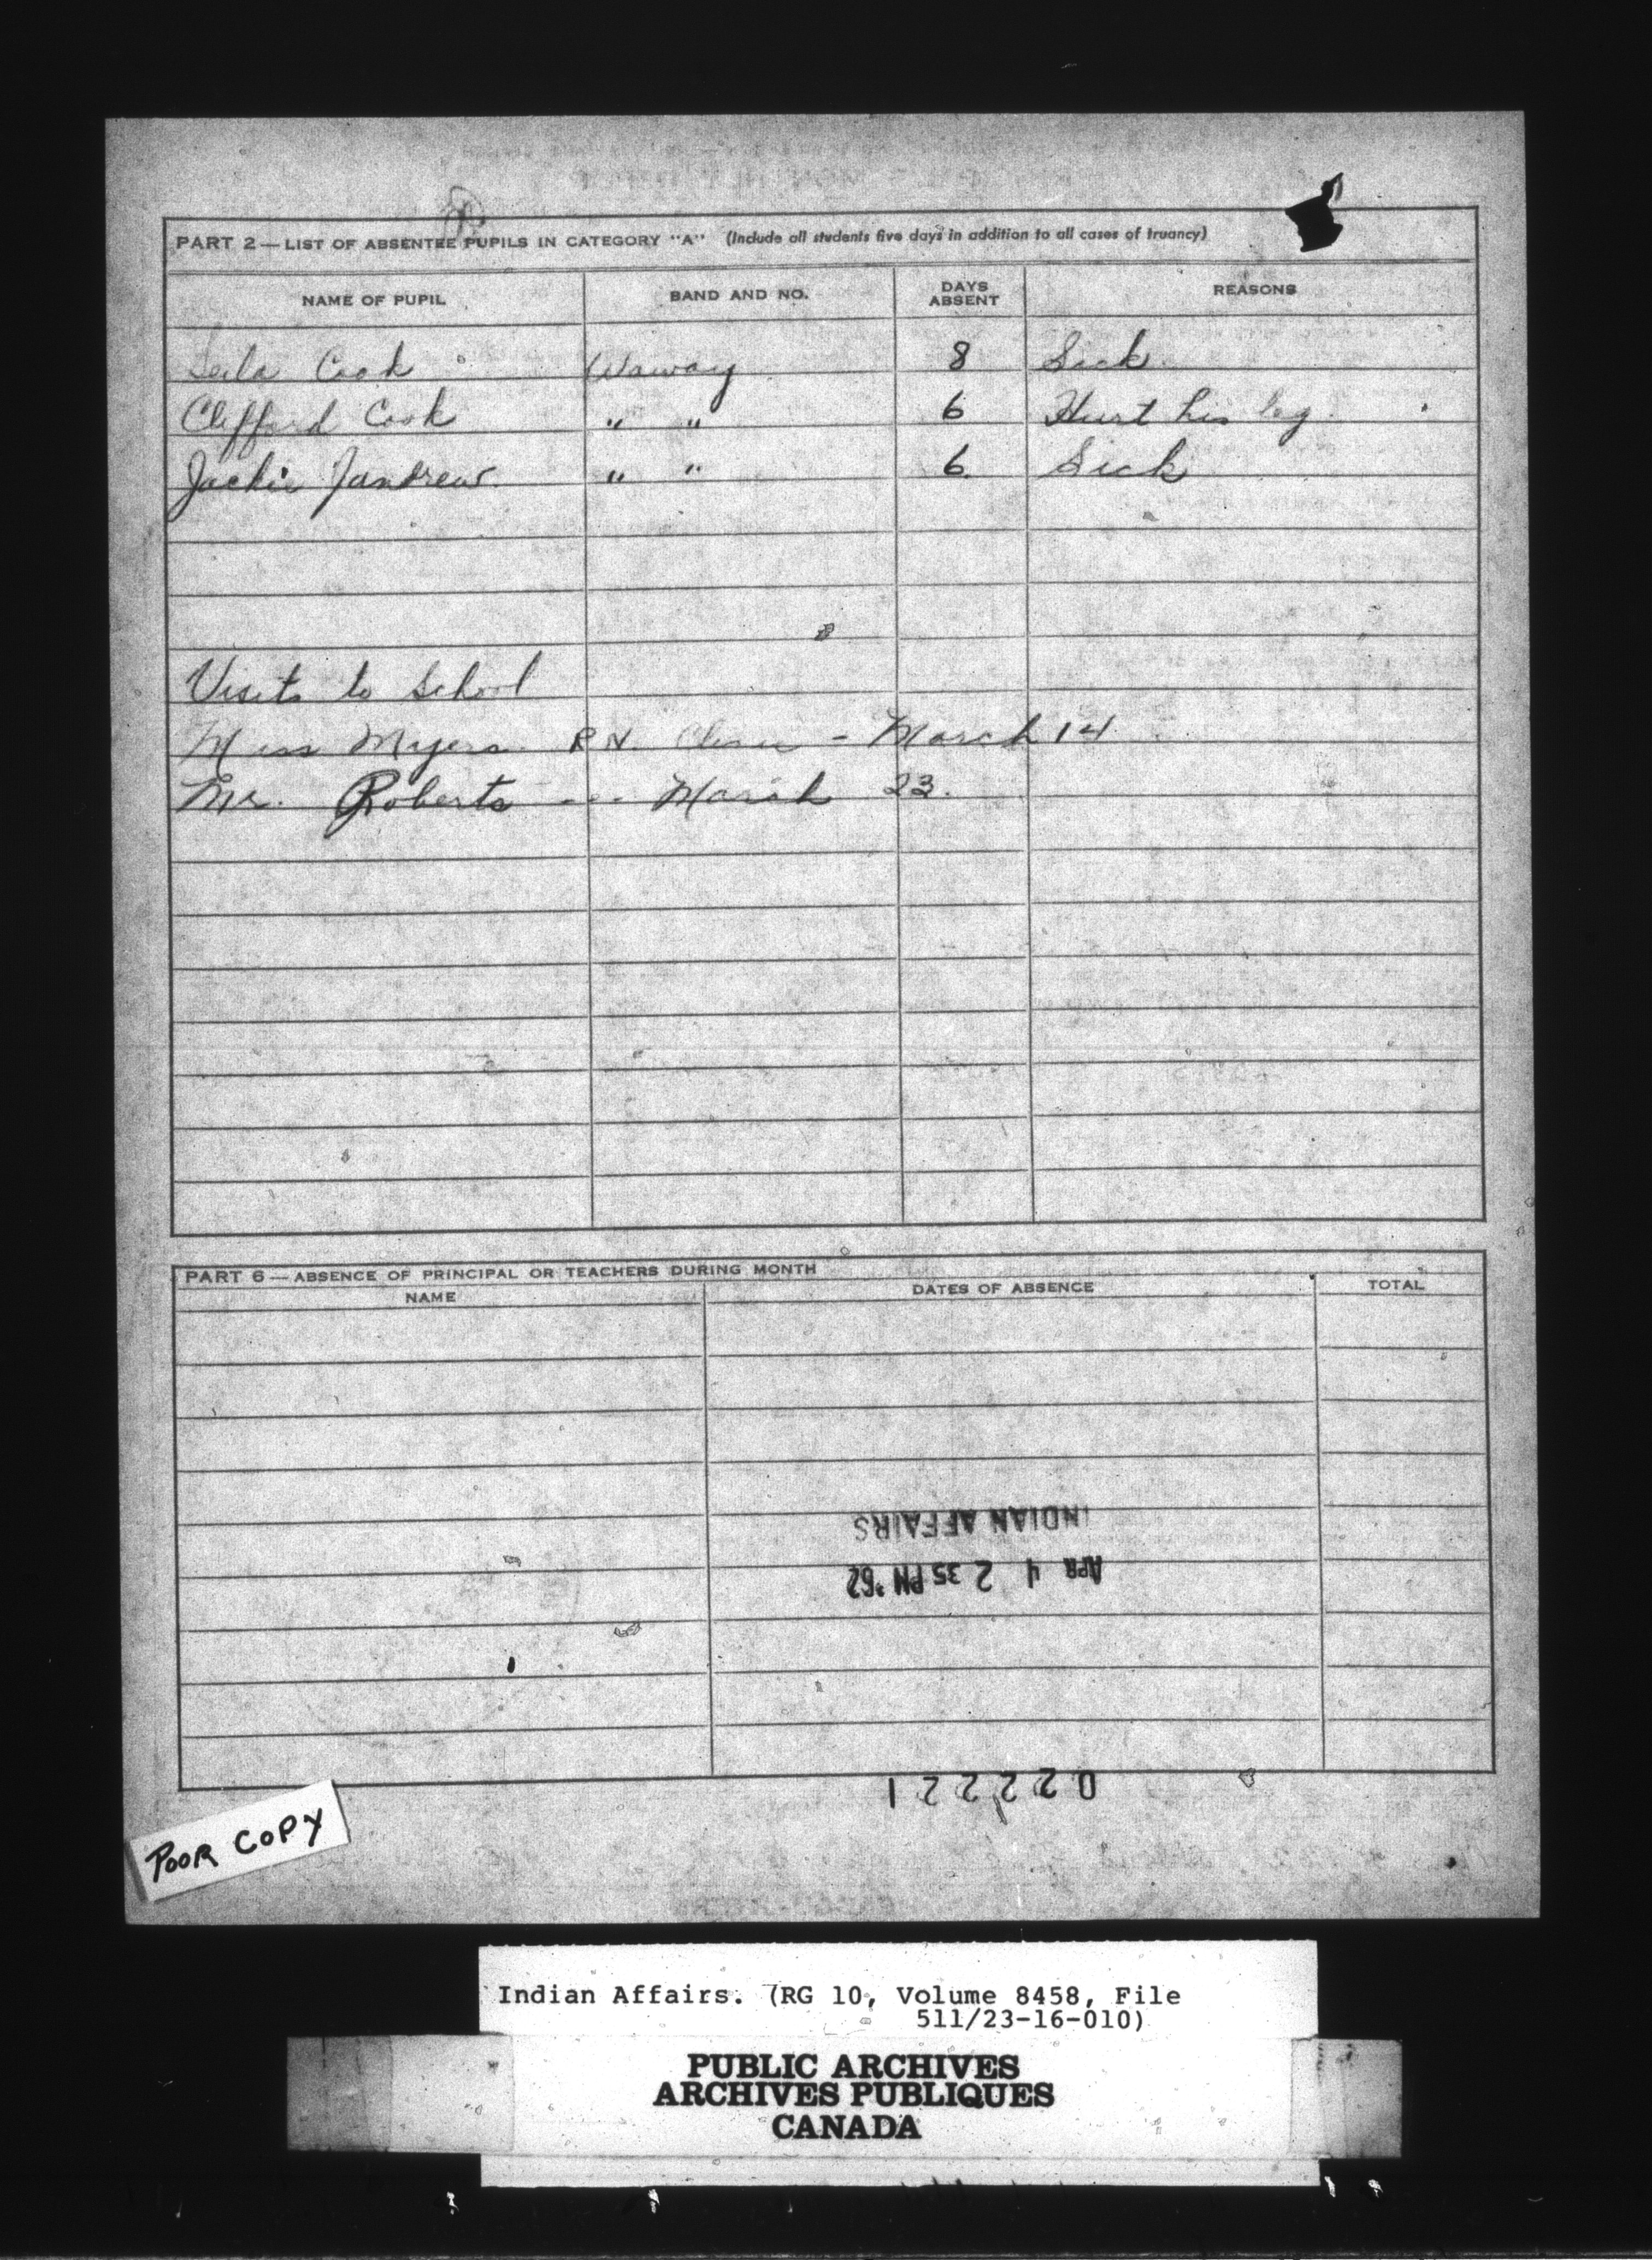 PART 2 — LIST OF ABSENTEE PUPILS IN CATEGORY "A" (Include all students five days in addition to all cases of truancy)
NAME OF PUPIL BAND AND NO. DAYS ABSENT REASONS
Leila Cook Waway 8 Sick
Clifford Cook " " 6 Hurt his leg
Jackie " " 6 Sick
Visits to School
Miss Myers R.N. - March 14
Mr. Roberts --- March 23.
PART 6 — ABSENCE OF PRINCIPAL OR TEACHERS DURING MONTH
NAME DATES OF ABSENCE TOTAL
INDIAN AFFAIRS
APR 4 2 35 PM '62
022221
POOR COPY
Indian Affairs. (RG 10, Volume 8458, File
511/23-16-010)
PUBLIC ARCHIVES
ARCHIVES PUBLIQUES
CANADA